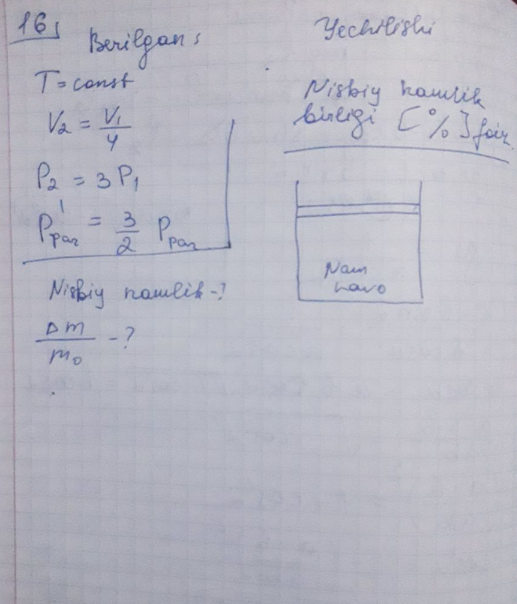 16,
Berilgan:
T = const
V₂ = V₁/4
P₂ = 3P₁
P'par = 3/2 Ppar
Nisbiy namlik - ?
Δm/m₀ - ?
Yechilishi
Nisbiy namlik
birligi [%] foiz.
Nam
havo